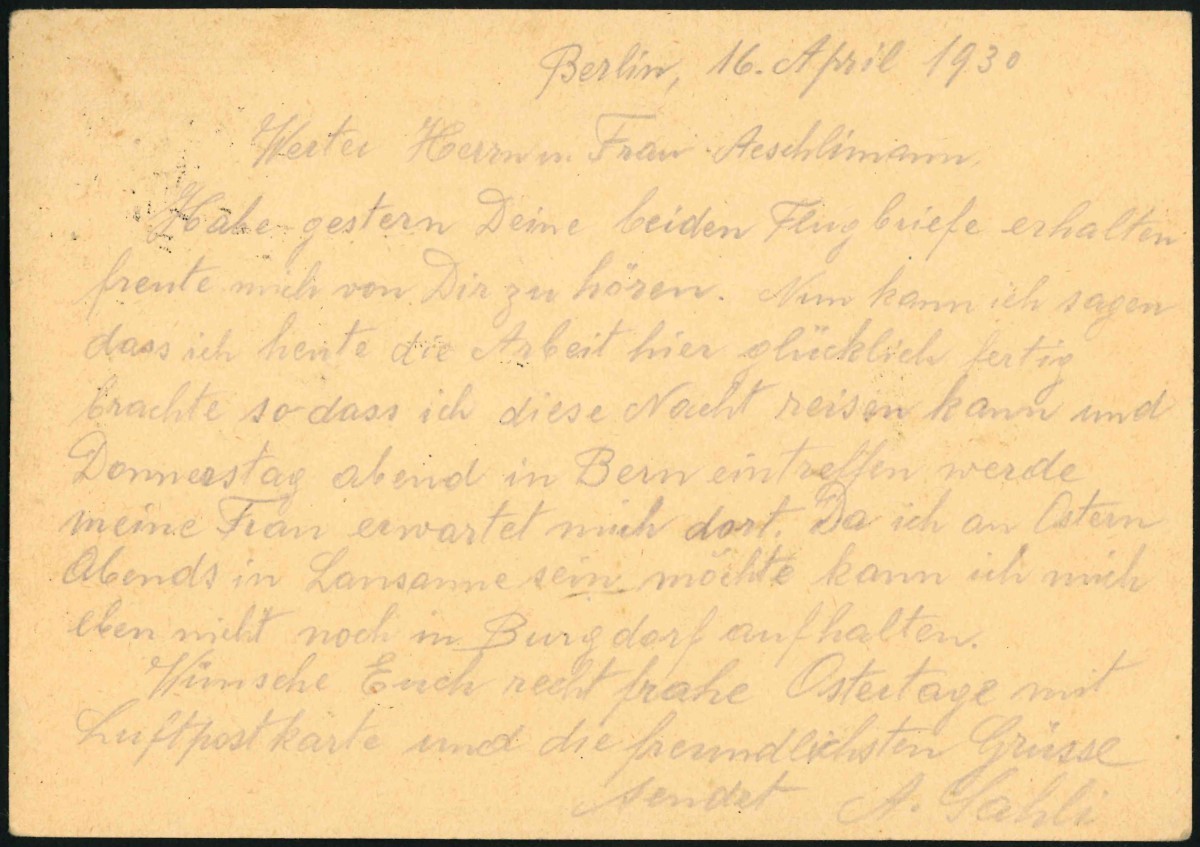 Berlin, 16. April 1930
Werter Herrn u. Frau Aeschlimann.
Habe gestern Deine beiden Flugbriefe erhalten
freute mich von Dir zu hören. Nun kann ich sagen
dass ich heute die Arbeit hier glücklich fertig
brachte so dass ich diese Nacht reisen kann und
Donnerstag abend in Bern eintreffen werde
meine Frau erwartet mich dort. Da ich an Ostern
Abends in Lausanne sein möchte kann ich mich
eben nicht noch in Burgdorf aufhalten.
Wünsche Euch recht frohe Ostertage mit
Luftpostkarte und die freundlichsten Grüsse
sendet A. Sahli